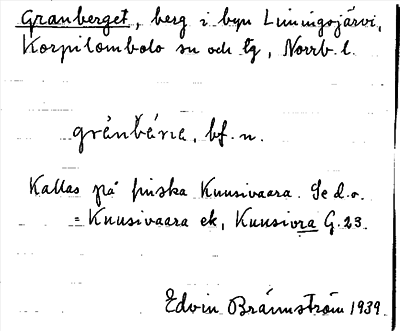 Granberget, berg i byn Liningsjärvi,
Korpilombolo sn och tg, Norrb. l.
grànbǽrıe, bf. n.
Kallas på finska Kuusivaara. Se d.o.
= Kuusivaara ek, Kuusivra G. 23.
Edvin Brännström 1939.